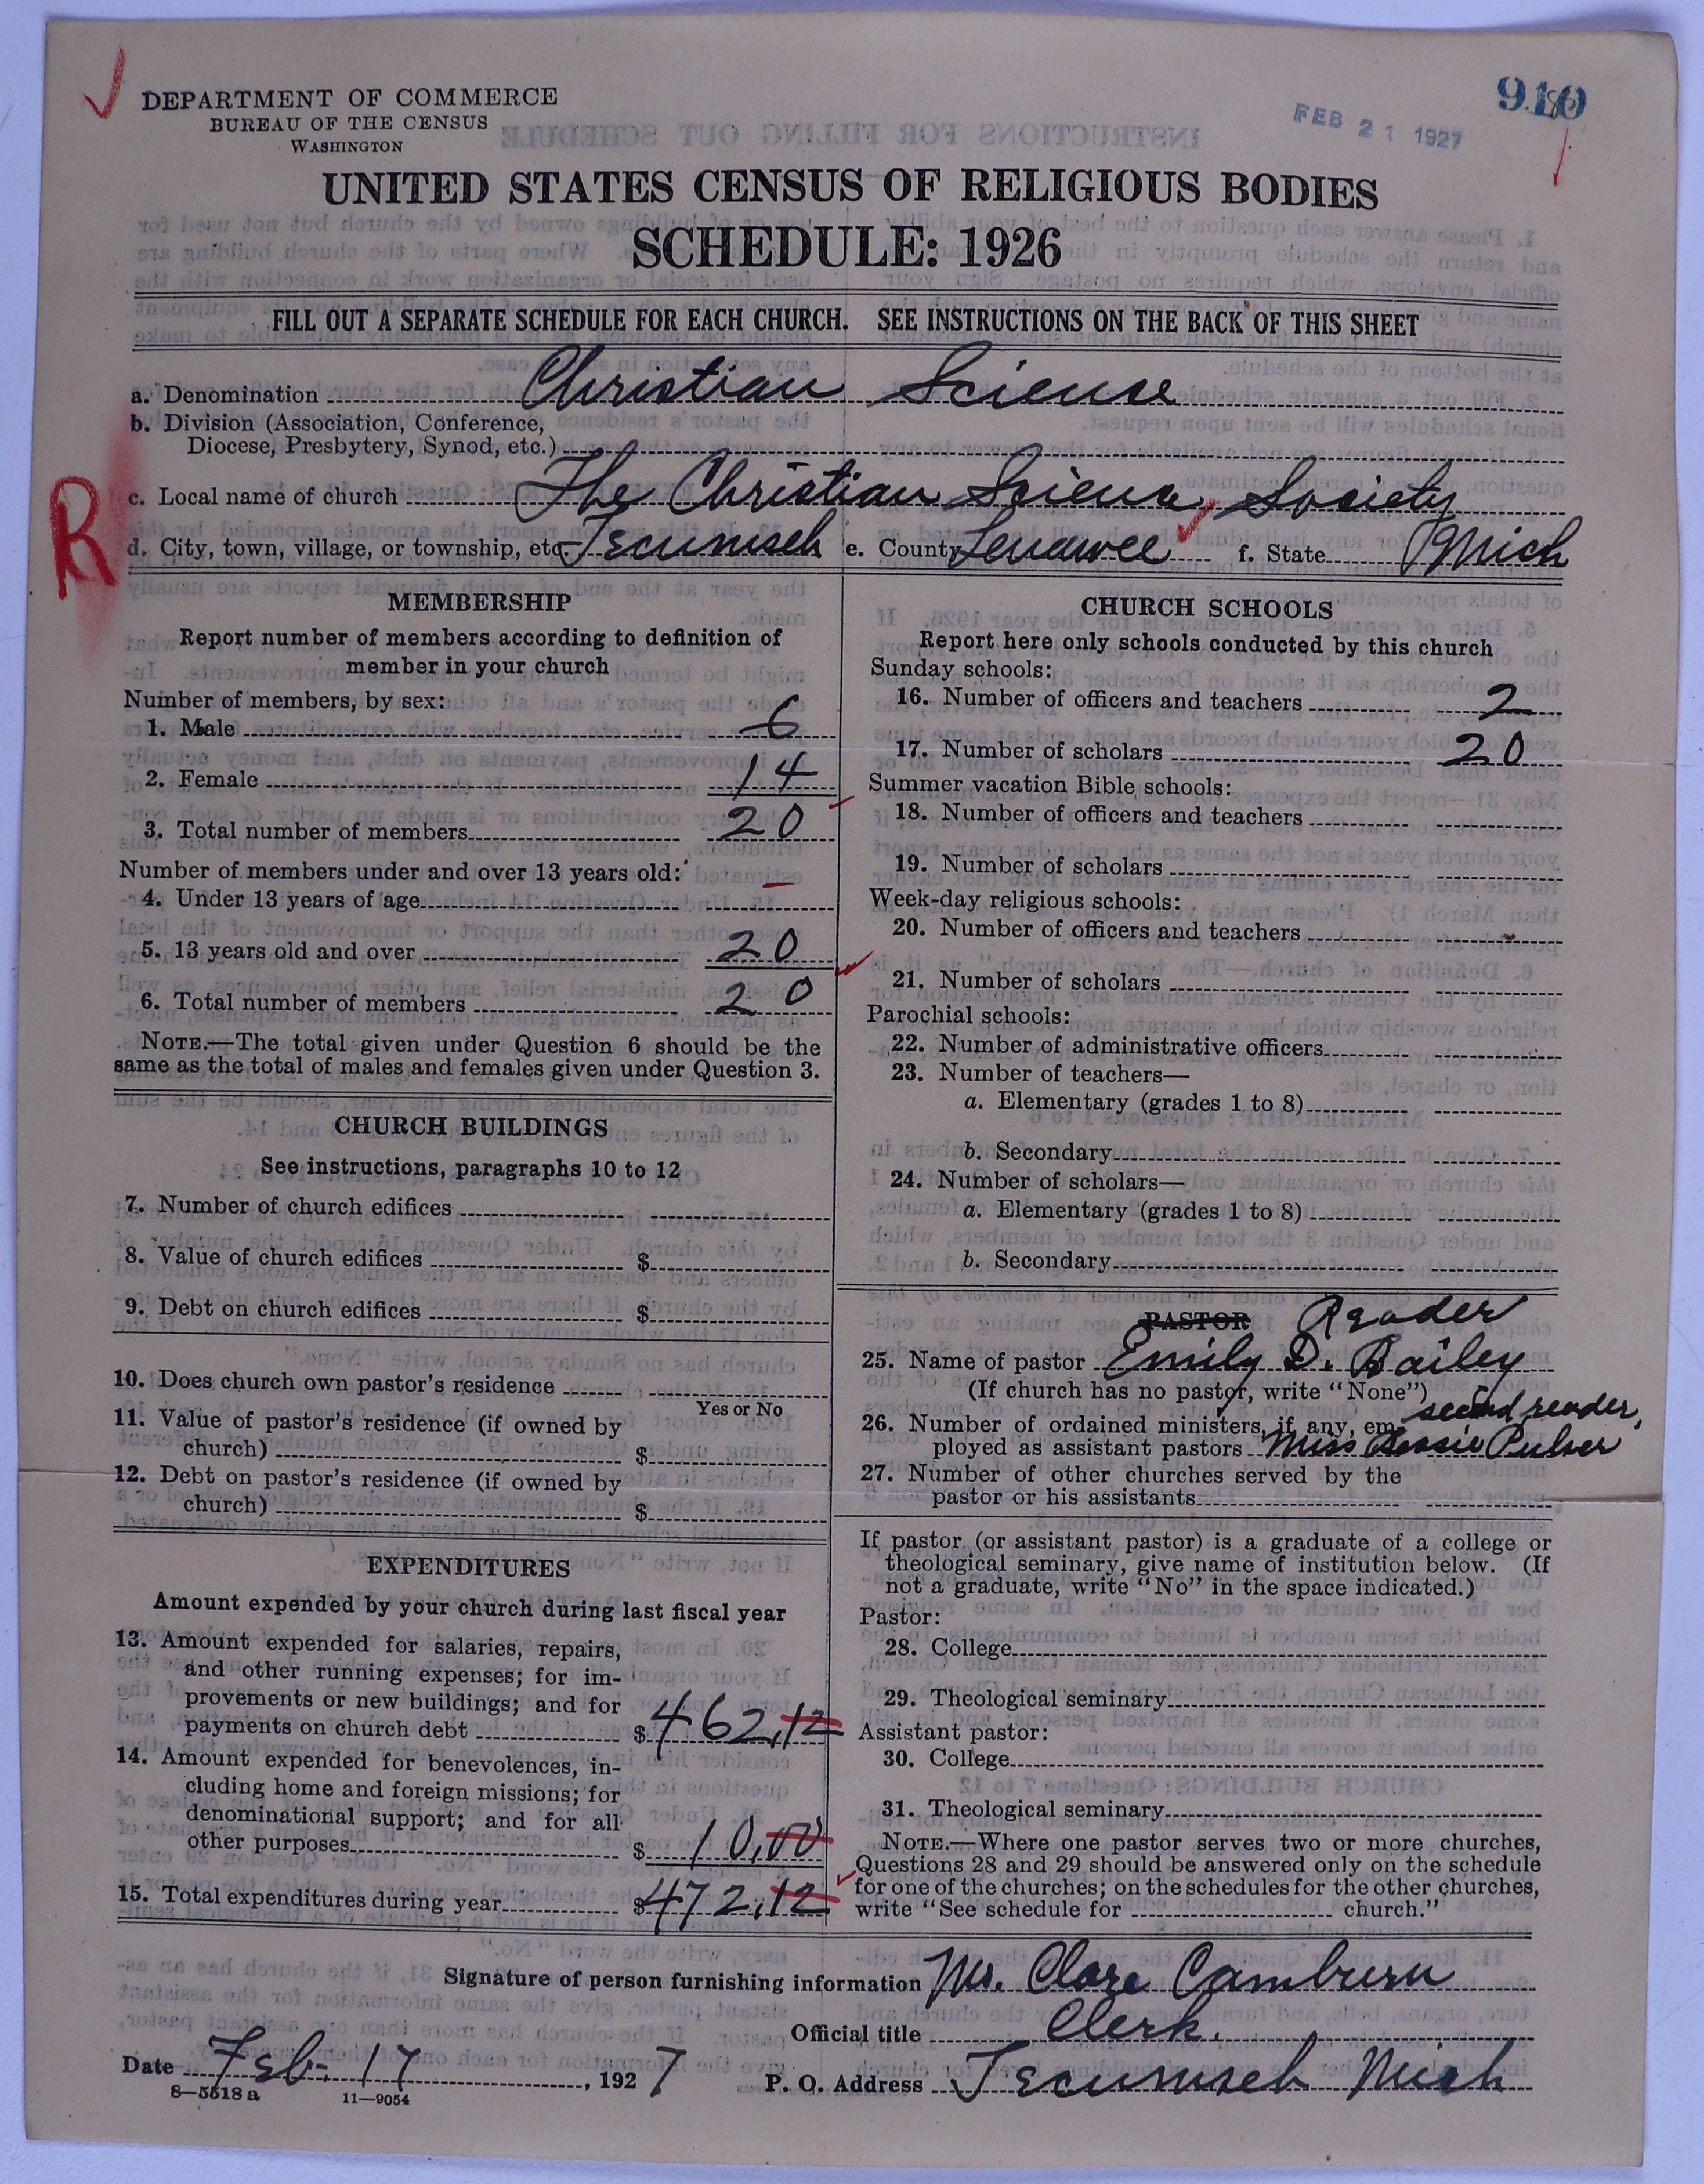 DEPARTMENT OF COMMERCE
BUREAU OF THE CENSUS
WASHINGTON
FEB 21 1927
910
UNITED STATES CENSUS OF RELIGIOUS BODIES
SCHEDULE: 1926
FILL OUT A SEPARATE SCHEDULE FOR EACH CHURCH. SEE INSTRUCTIONS ON THE BACK OF THIS SHEET
a. Denomination Christian Science
b. Division (Association, Conference,
Diocese, Presbytery, Synod, etc.)
R
c. Local name of church The Christian Science Society
d. City, town, village, or township, etc. Tecumseh e. County Lenawee f. State Mich
MEMBERSHIP
Report number of members according to definition of
member in your church
Number of members, by sex:
1. Male 6
2. Female 14
3. Total number of members 20
Number of members under and over 13 years old:
4. Under 13 years of age
5. 13 years old and over 20
6. Total number of members 20
NOTE.—The total given under Question 6 should be the
same as the total of males and females given under Question 3.
CHURCH BUILDINGS
See instructions, paragraphs 10 to 12
7. Number of church edifices
8. Value of church edifices $
9. Debt on church edifices $
10. Does church own pastor's residence
Yes or No
11. Value of pastor's residence (if owned by
church) $
12. Debt on pastor's residence (if owned by
church) $
EXPENDITURES
Amount expended by your church during last fiscal year
13. Amount expended for salaries, repairs,
and other running expenses; for im-
provements or new buildings; and for
payments on church debt $462.12
14. Amount expended for benevolences, in-
cluding home and foreign missions; for
denominational support; and for all
other purposes $10.00
15. Total expenditures during year $472.12
CHURCH SCHOOLS
Report here only schools conducted by this church
Sunday schools:
16. Number of officers and teachers 2
17. Number of scholars 20
Summer vacation Bible schools:
18. Number of officers and teachers
19. Number of scholars
Week-day religious schools:
20. Number of officers and teachers
21. Number of scholars
Parochial schools:
22. Number of administrative officers
23. Number of teachers—
a. Elementary (grades 1 to 8)
b. Secondary
24. Number of scholars—
a. Elementary (grades 1 to 8)
b. Secondary
PASTOR Reader
25. Name of pastor Emily D. Bailey
(If church has no pastor, write "None")
second reader,
26. Number of ordained ministers, if any, em-
ployed as assistant pastors Miss Bessie Pulver
27. Number of other churches served by the
pastor or his assistants
If pastor (or assistant pastor) is a graduate of a college or
theological seminary, give name of institution below. (If
not a graduate, write "No" in the space indicated.)
Pastor:
28. College
29. Theological seminary
Assistant pastor:
30. College
31. Theological seminary
NOTE.—Where one pastor serves two or more churches,
Questions 28 and 29 should be answered only on the schedule
for one of the churches; on the schedules for the other churches,
write "See schedule for church."
Signature of person furnishing information Mrs. Clare Camburn
Official title Clerk.
Date Feb. 17, 1927
P. O. Address Tecumseh Mich
8—5518 a 11—9054